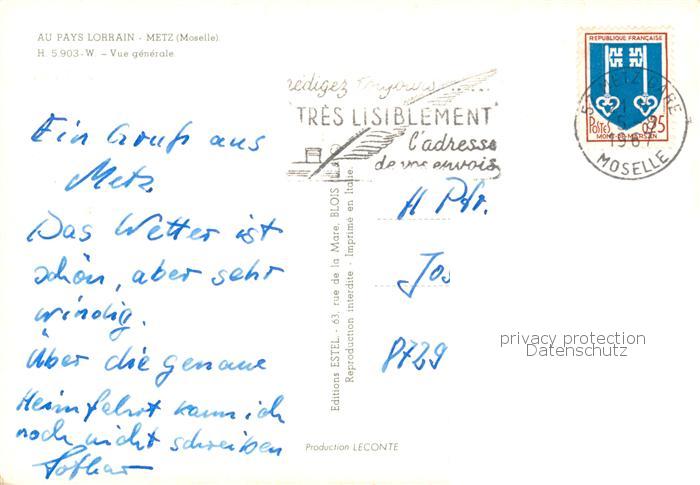 AU PAYS LORRAIN - METZ (Moselle).
H. 5.903-W. - Vue générale.
REPUBLIQUE FRANÇAISE
POSTES 0,25
MONT-DE-MARSAN
METZ GARE
1967
MOSELLE
rédigez toujours ......
"TRÈS LISIBLEMENT"
l'adresse
de vos envois
Ein Gruß aus
Metz.
Das Wetter ist
schön, aber sehr
windig.
Über die genaue
Heimfahrt kann ich
noch nicht schreiben
Lothar
Editions ESTEL. - 63, rue de la Mare, BLOIS
Reproduction interdite - Imprimé en Italie.
H Pfr.
Jos
8729
privacy protection
Datenschutz
Production LECONTE